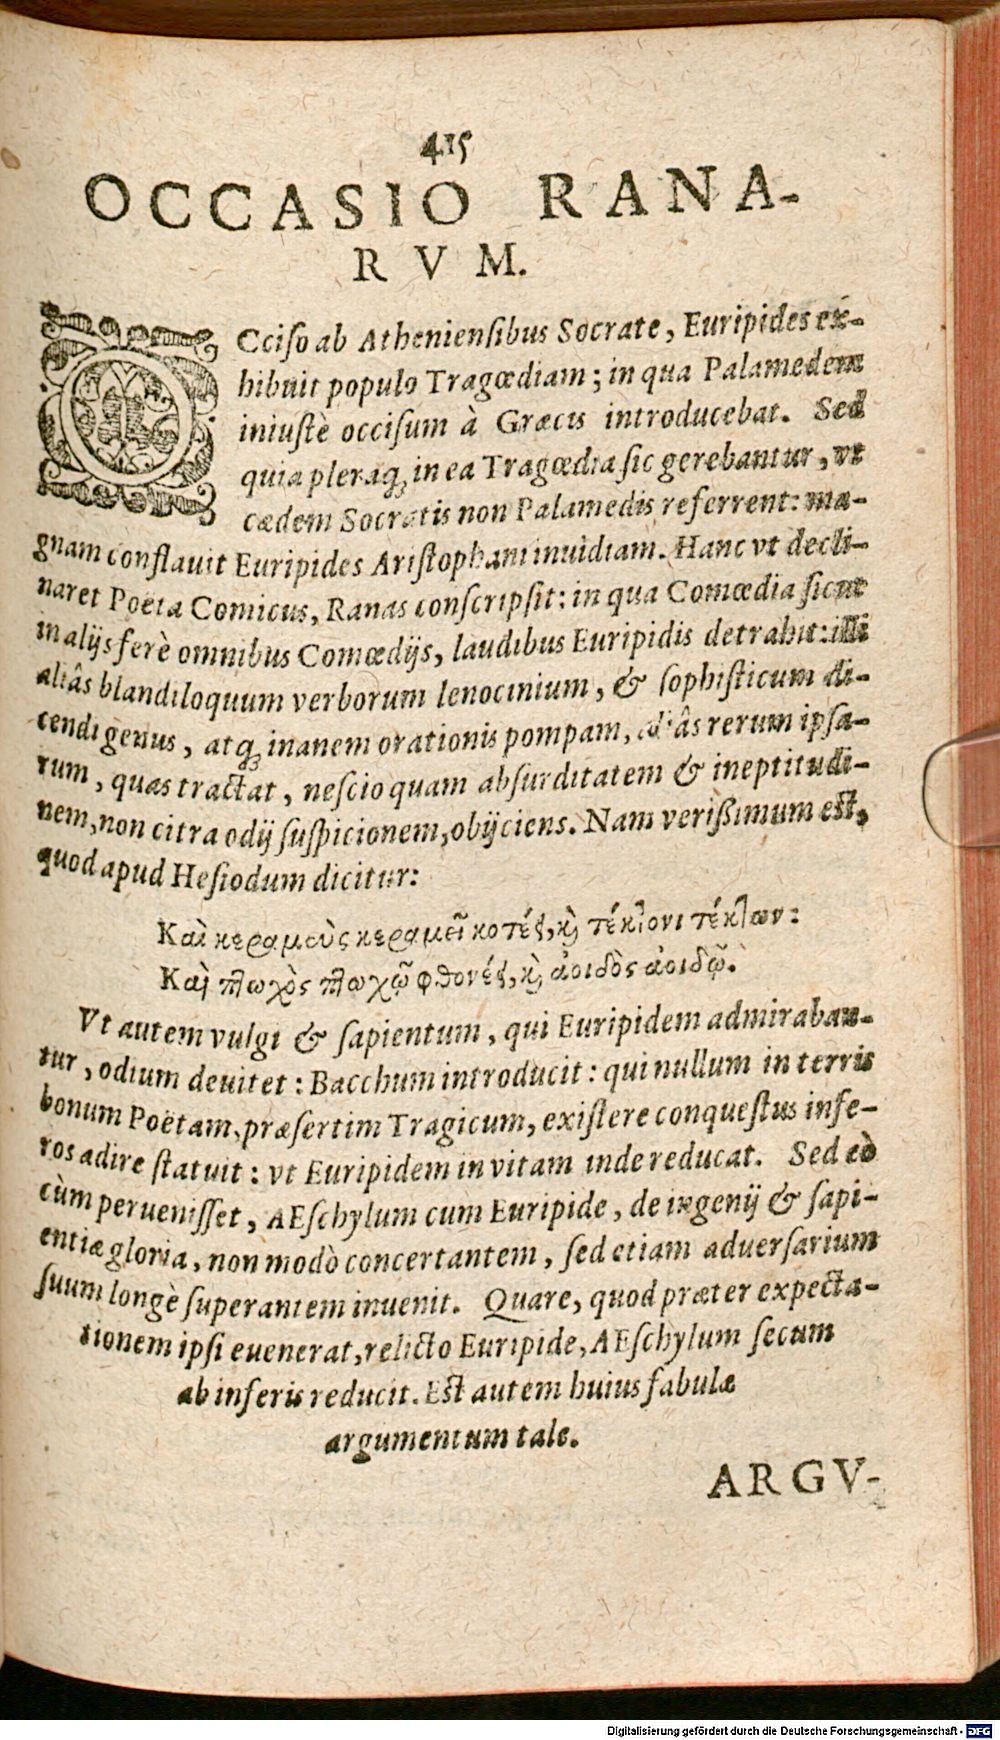 415
OCCASIO RANA-
RVM.
OCciſo ab Athenienſibus Socrate, Euripides ex-
hibuit populo Tragœdiam; in qua Palamedem
iniuſtè occiſum à Græcis introducebat. Sed
quia pleraq; in ea Tragœdia ſic gerebantur, vt
cædem Socratis non Palamedis referrent: ma-
gnam conflauit Euripides Ariſtophani inuidiam. Hanc vt decli-
naret Poëta Comicus, Ranas conſcripſit: in qua Comœdia ſicut
in alijs ferè omnibus Comœdijs, laudibus Euripidis detrahit: illi
aliâs blandiloquum verborum lenocinium, & ſophiſticum di-
cendi genus, atq; inanem orationis pompam, aliâs rerum ipſa-
rum, quas tractat, neſcio quam abſurditatem & ineptitudi-
nem, non citra odij ſuſpicionem, obijciens. Nam verißimum eſt,
quod apud Heſiodum dicitur:
Καὶ κεραμεὺς κεραμεῖ κοτέει, κ̀ τέκτονι τέκτων:
Καὶ πτωχὸς πτωχῷ φθονέει, κ̀ ἀοιδὸς ἀοιδῷ.
Vt autem vulgi & ſapientum, qui Euripidem admiraban-
tur, odium deuitet: Bacchum introducit: qui nullum in terris
bonum Poëtam, præſertim Tragicum, exiſtere conqueſtus infe-
ros adire ſtatuit: vt Euripidem in vitam inde reducat. Sed eò
cùm perueniſſet, AEſchylum cum Euripide, de ingenij & ſapi-
entiæ gloria, non modò concertantem, ſed etiam aduerſarium
ſuum longè ſuperantem inuenit. Quare, quod præter expecta-
tionem ipſi euenerat, relicto Euripide, AEſchylum ſecum
ab inferis reducit. Eſt autem huius fabulæ
argumentum tale.
ARGV-
Digitalisierung gefördert durch die Deutsche Forschungsgemeinschaft - DFG